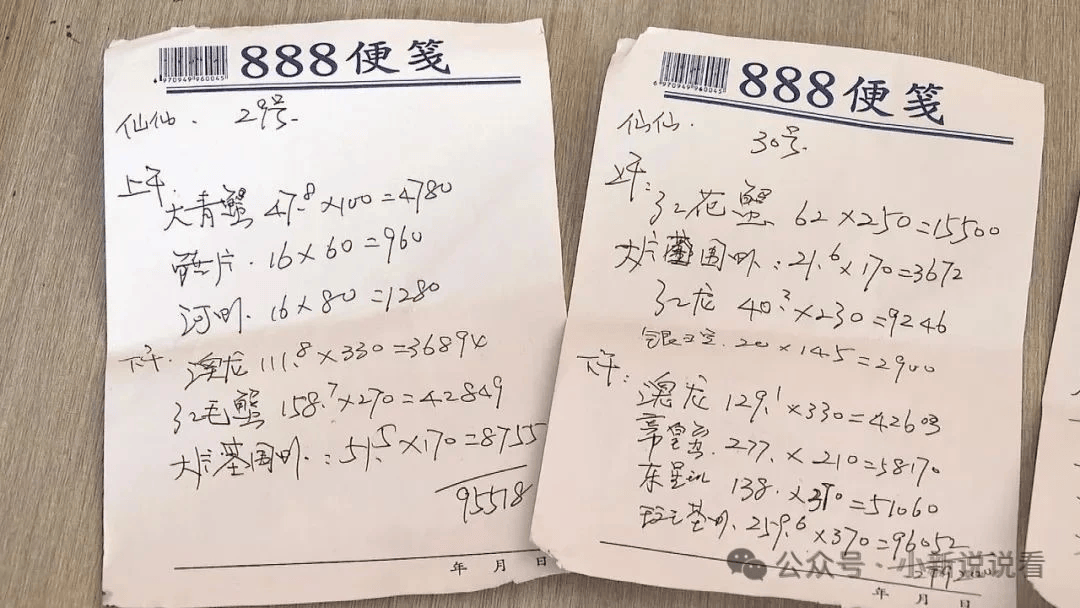 6 970949 960045
888便笺
仙仙. 29号.
上午.
大青蟹 47.8×100=4780
片. 16×60=960
河虾. 16×80=1280
下午. 澳龙 111.8×330=36894
红毛蟹 158.7×270=42849
大片基围虾.: 51.5×170=8755
95518
年 月 日
6 970949 960045
888便笺
仙仙. 30号.
上午:
红花蟹 62×250=15500
大片基围虾: 21.6×170=3672
红龙 40.2×230=9246
20×145=2900
下午: 澳龙 129.1×330=42603
帝皇蟹. 277.×210=58170
东星斑 138.×370=51060
基虾. 259.6×370=96052
年 月
公众号 · 小新说说看